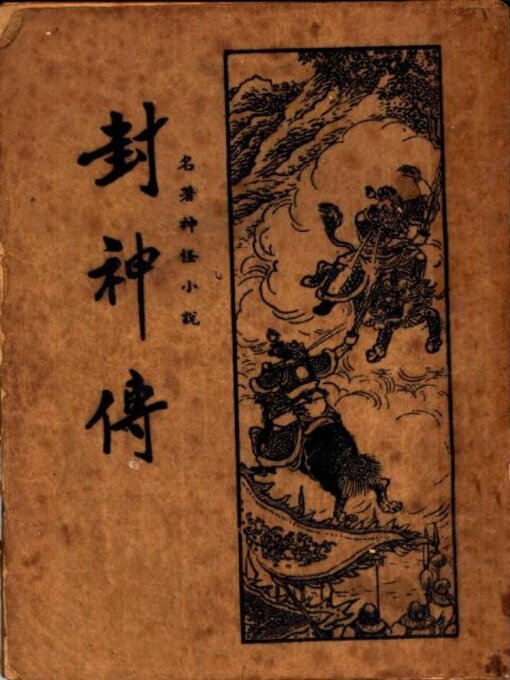 封神傳
名著神怪小説